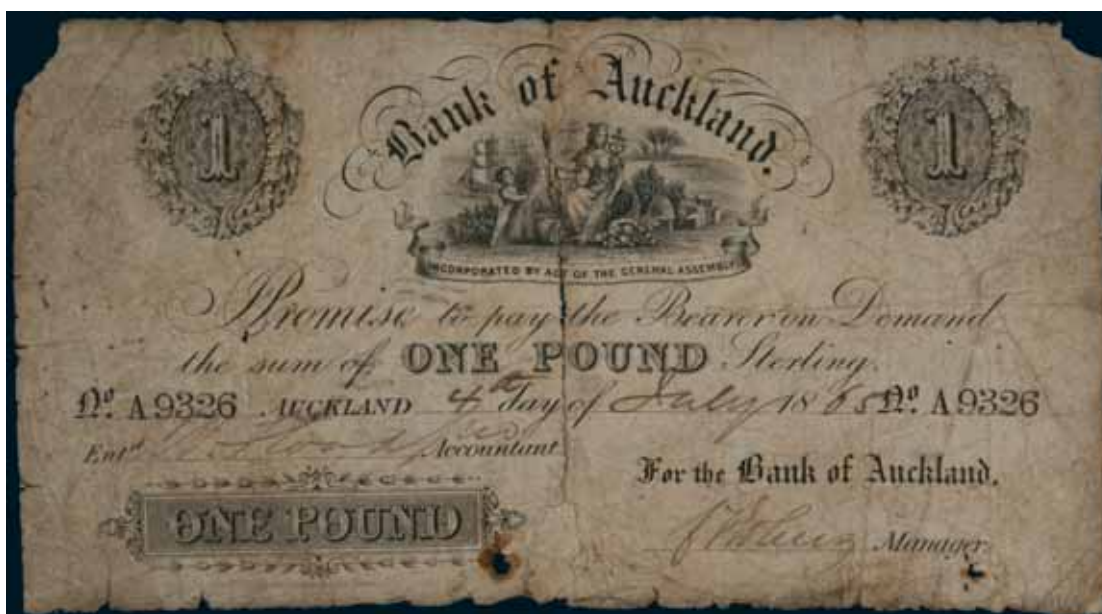 1 Bank of Auckland. 1
INCORPORATED BY ACT OF THE GENERAL ASSEMBLY
I Promise to pay the Bearer on Demand
the sum of ONE POUND Sterling.
No. A 9326 AUCKLAND 4th day of July 1865 No. A 9326
Entd. Accountant
For the Bank of Auckland.
ONE POUND
Manager.